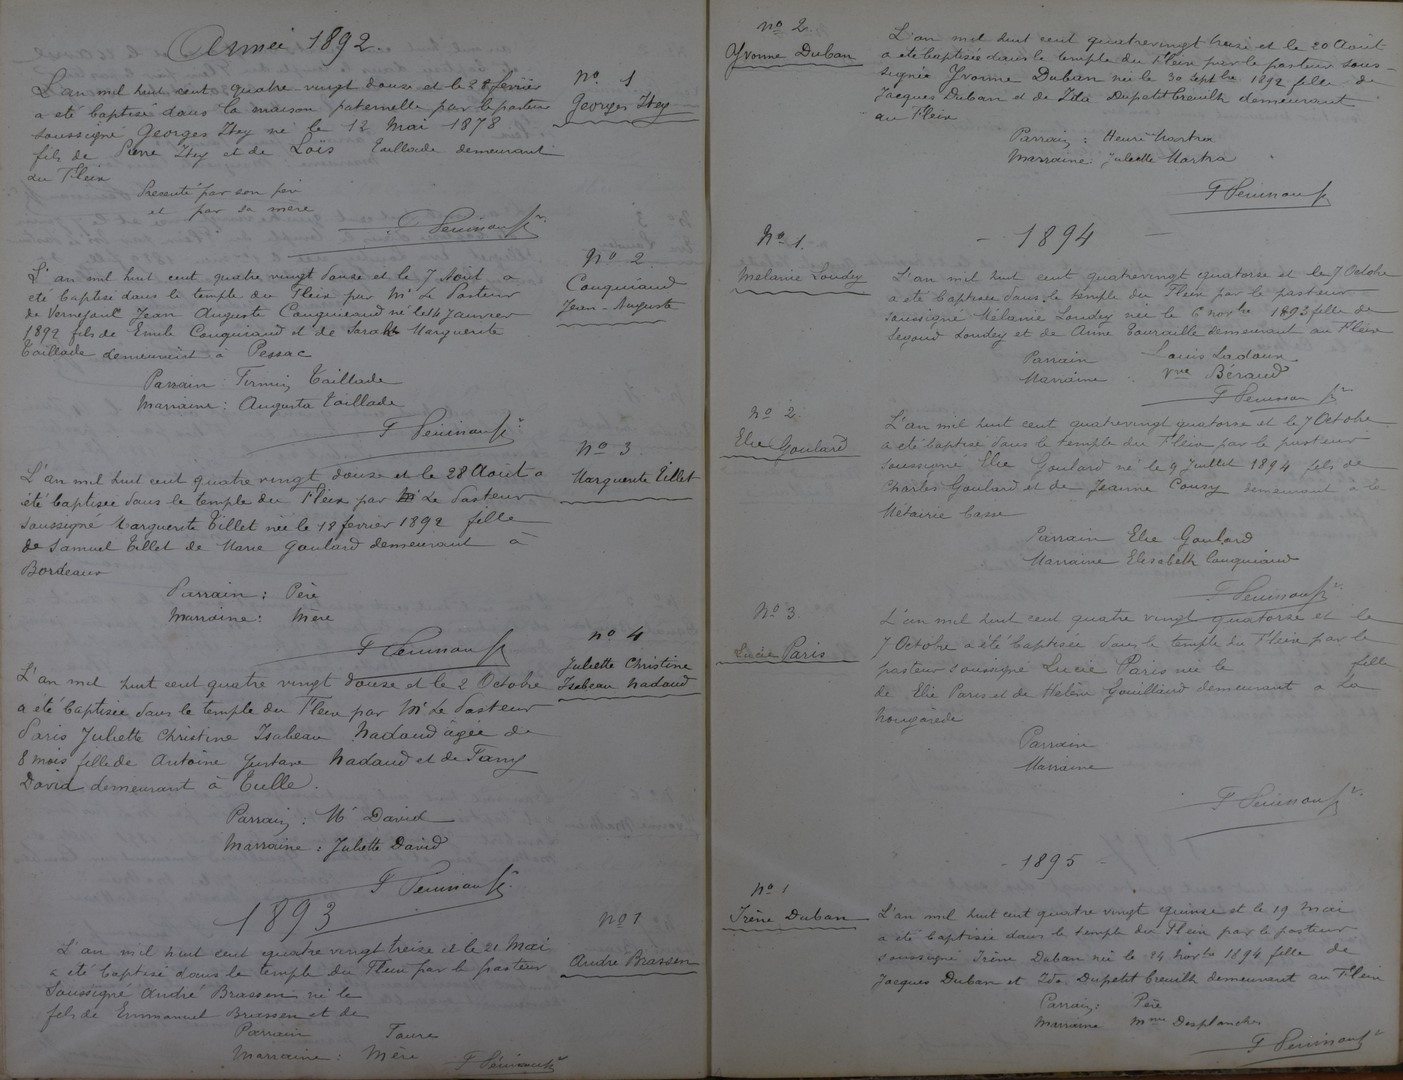 Année 1892.
L'an mil huit cent quatre vingt douze et le 28 février
a été baptisé dans la maison paternelle par le pasteur
soussigné Georges Itey né le 12 Mai 1878
fils de Pierre Itey et de Loïs Taillade demeurant
au Fleix
Présenté par son père
et par sa mère
no 1
Georges Itey
L'an mil huit cent quatre vingt douze et le 7 Août a
été baptisé dans le temple du Fleix par Mr Le Pasteur
de Vernejoul Jean Auguste Couquiaud né le 14 Janvier
1892 fils de Emile Couquiaud et de Sarah Marguerite
Taillade demeurant à Pessac
Parrain : Firmin Taillade
Marraine : Augusta Taillade
no 2
Couquiaud
Jean-Auguste
L'an mil huit cent quatre vingt douze et le 28 Août a
été baptisée dans le temple du Fleix par Le Pasteur
soussigné Marguerite Tillet née le 18 février 1892 fille
de Samuel Tillet de Marie Goulard demeurant à
Bordeaux
Parrain : Père
Marraine : Mère
no 3
Marguerite Tillet
L'an mil huit cent quatre vingt douze et le 2 Octobre
a été baptisée dans le temple du Fleix par Mr Le Pasteur
Paris Juliette Christine Isabeau Nadaud âgée de
8 mois fille de Antoine Gustave Nadaud et de Fany
David demeurant à Tulle.
Parrain : Mr David
Marraine : Juliette David
no 4
Juliette Christine
Isabeau Nadaud
1893
L'an mil huit cent quatre vingt treize et le 21 Mai
a été baptisé dans le temple du Fleix par le pasteur
soussigné André Brassen né le
fils de Emmanuel Brassen et de
Parrain Faure
Marraine : Mère
no 1
André Brassen
no 2
Yvonne Duban
L'an mil huit cent quatrevingt treize et le 20 Août
a été baptisée dans le temple du Fleix par le pasteur sous-
signé Yvonne Duban née le 30 Septbre 1892 fille de
Jacques Duban et de Zda Dupetit Breuilh demeurant
au Fleix
Parrain : Henri Martra
Marraine : Juliette Martra
- 1894 -
no 1.
Mélanie Loudey
L'an mil huit cent quatrevingt quatorze et le 7 Octobre
a été baptisée dans le temple du Fleix par le pasteur
soussigné Mélanie Loudey née le 6 novbre 1893 fille de
Segond Loudey et de Anne Touraille demeurant au Fleix
Parrain Louis Ladoux
Marraine Vve Béraud
no 2
Elie Goulard
L'an mil huit cent quatrevingt quatorze et le 7 Octobre
a été baptisé dans le temple du Fleix par le pasteur
soussigné Elie Goulard né le 9 Juillet 1894 fils de
Charles Goulard et de Jeanne Cousy demeurant à la
Métairie basse
Parrain Elie Goulard
Marraine Elisabeth Couquiaud
no 3.
Lucie Paris
L'an mil huit cent quatre vingt quatorze et le
7 Octobre a été baptisée dans le temple du Fleix par le
pasteur soussigné Lucie Paris née le fille
de Elie Paris et de Hélène Gouilliaud demeurant à la
Nougarède
Parrain
Marraine
- 1895 -
no 1
Irène Duban
L'an mil huit cent quatre vingt quinze et le 19 Mai
a été baptisée dans le temple du Fleix par le pasteur
soussigné Irène Duban née le 24 novbre 1894 fille de
Jacques Duban et Zda Dupetit Breuilh demeurant au Fleix
Parrain : Père
Marraine Mme Desplanches